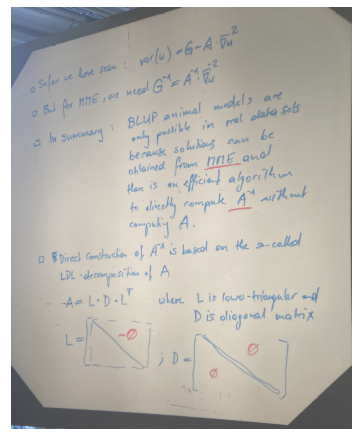 □ So far we have seen : var(u) = G = A·σu²
□ But for MME, we need G⁻¹ = A⁻¹·σu⁻²
□ In summary : BLUP animal models are
only possible in real data sets
because solutions can be
obtained from MME and
there is an efficient algorithm
to directly compute A⁻¹ without
computing A.
□ Direct construction of A⁻¹ is based on the so-called
LDL-decomposition of A
· A = L · D · Lᵀ where L is lower-triangular and
D is diagonal matrix
L = [ ∅ ] ; D = [ ∅ ∅ ]